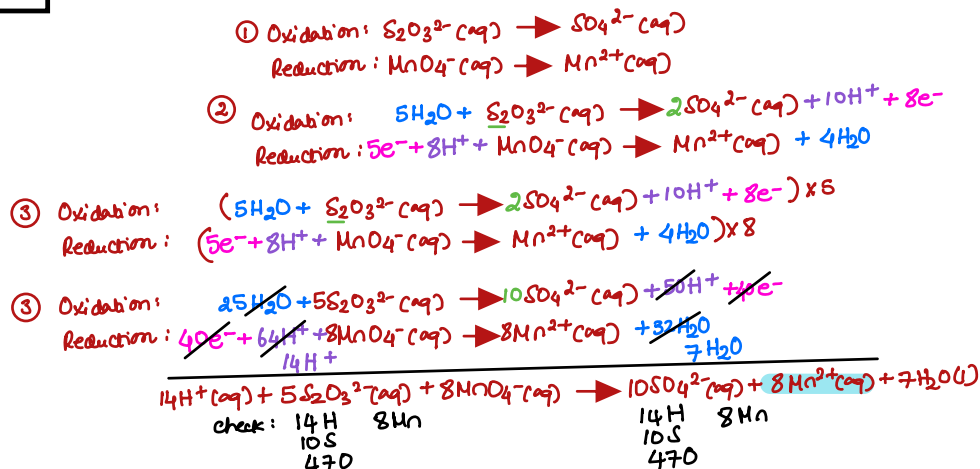 ① Oxidation: S₂O₃²⁻(aq) → SO₄²⁻(aq)
Reduction: MnO₄⁻(aq) → Mn²⁺(aq)
② Oxidation: 5H₂O + S₂O₃²⁻(aq) → 2SO₄²⁻(aq) + 10H⁺ + 8e⁻
Reduction: 5e⁻ + 8H⁺ + MnO₄⁻(aq) → Mn²⁺(aq) + 4H₂O
③ Oxidation: (5H₂O + S₂O₃²⁻(aq) → 2SO₄²⁻(aq) + 10H⁺ + 8e⁻) x5
Reduction: (5e⁻ + 8H⁺ + MnO₄⁻(aq) → Mn²⁺(aq) + 4H₂O) x8
③ Oxidation: 25H₂O + 5S₂O₃²⁻(aq) → 10SO₄²⁻(aq) + 50H⁺ + 40e⁻
Reduction: 40e⁻ + 64H⁺ + 8MnO₄⁻(aq) → 8Mn²⁺(aq) + 32H₂O
14H⁺ 7H₂O
14H⁺(aq) + 5S₂O₃²⁻(aq) + 8MnO₄⁻(aq) → 10SO₄²⁻(aq) + 8Mn²⁺(aq) + 7H₂O(l)
check: 14H 8Mn 14H 8Mn
10S 10S
47O 47O